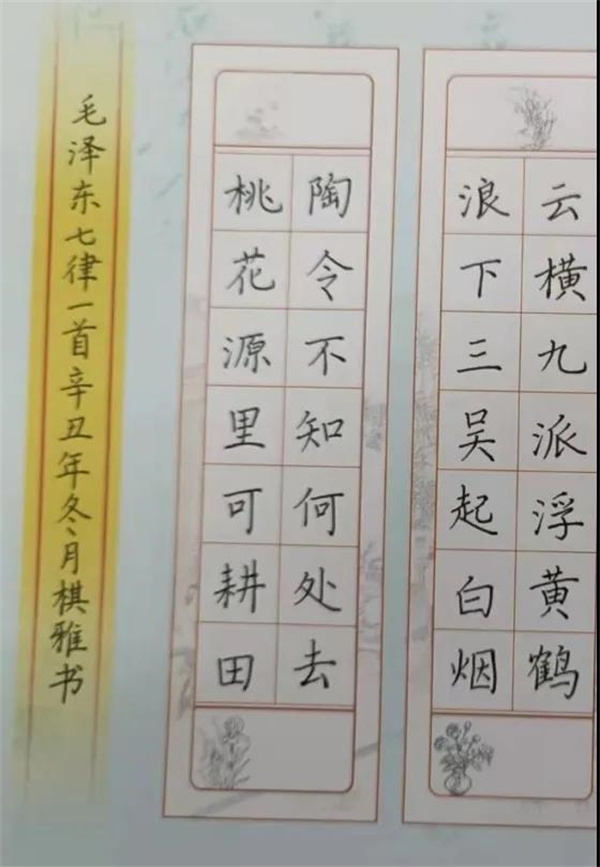 云横九派浮黄鹤
浪下三吴起白烟
陶令不知何处去
桃花源里可耕田
毛泽东七律一首辛丑年冬月棋雅书